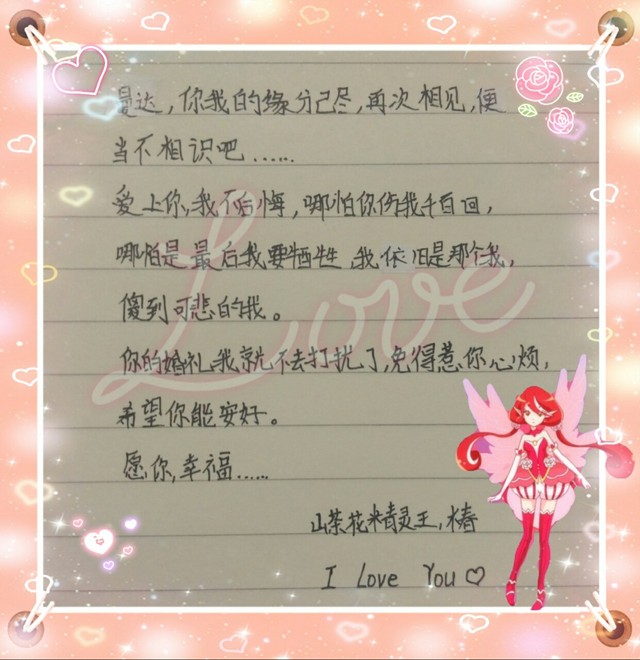 曼达，你我的缘分已尽，再次相见，便
当不相识吧......
爱上你，我不后悔，哪怕你伤我千百回，
哪怕是最后我要牺牲，我依旧是那个我，
傻到可悲的我。
你的婚礼，我就不去打扰了，免得惹你心烦，
希望你能安好。
愿你，幸福......
山茶花精灵王，椿
I Love You♡
Love